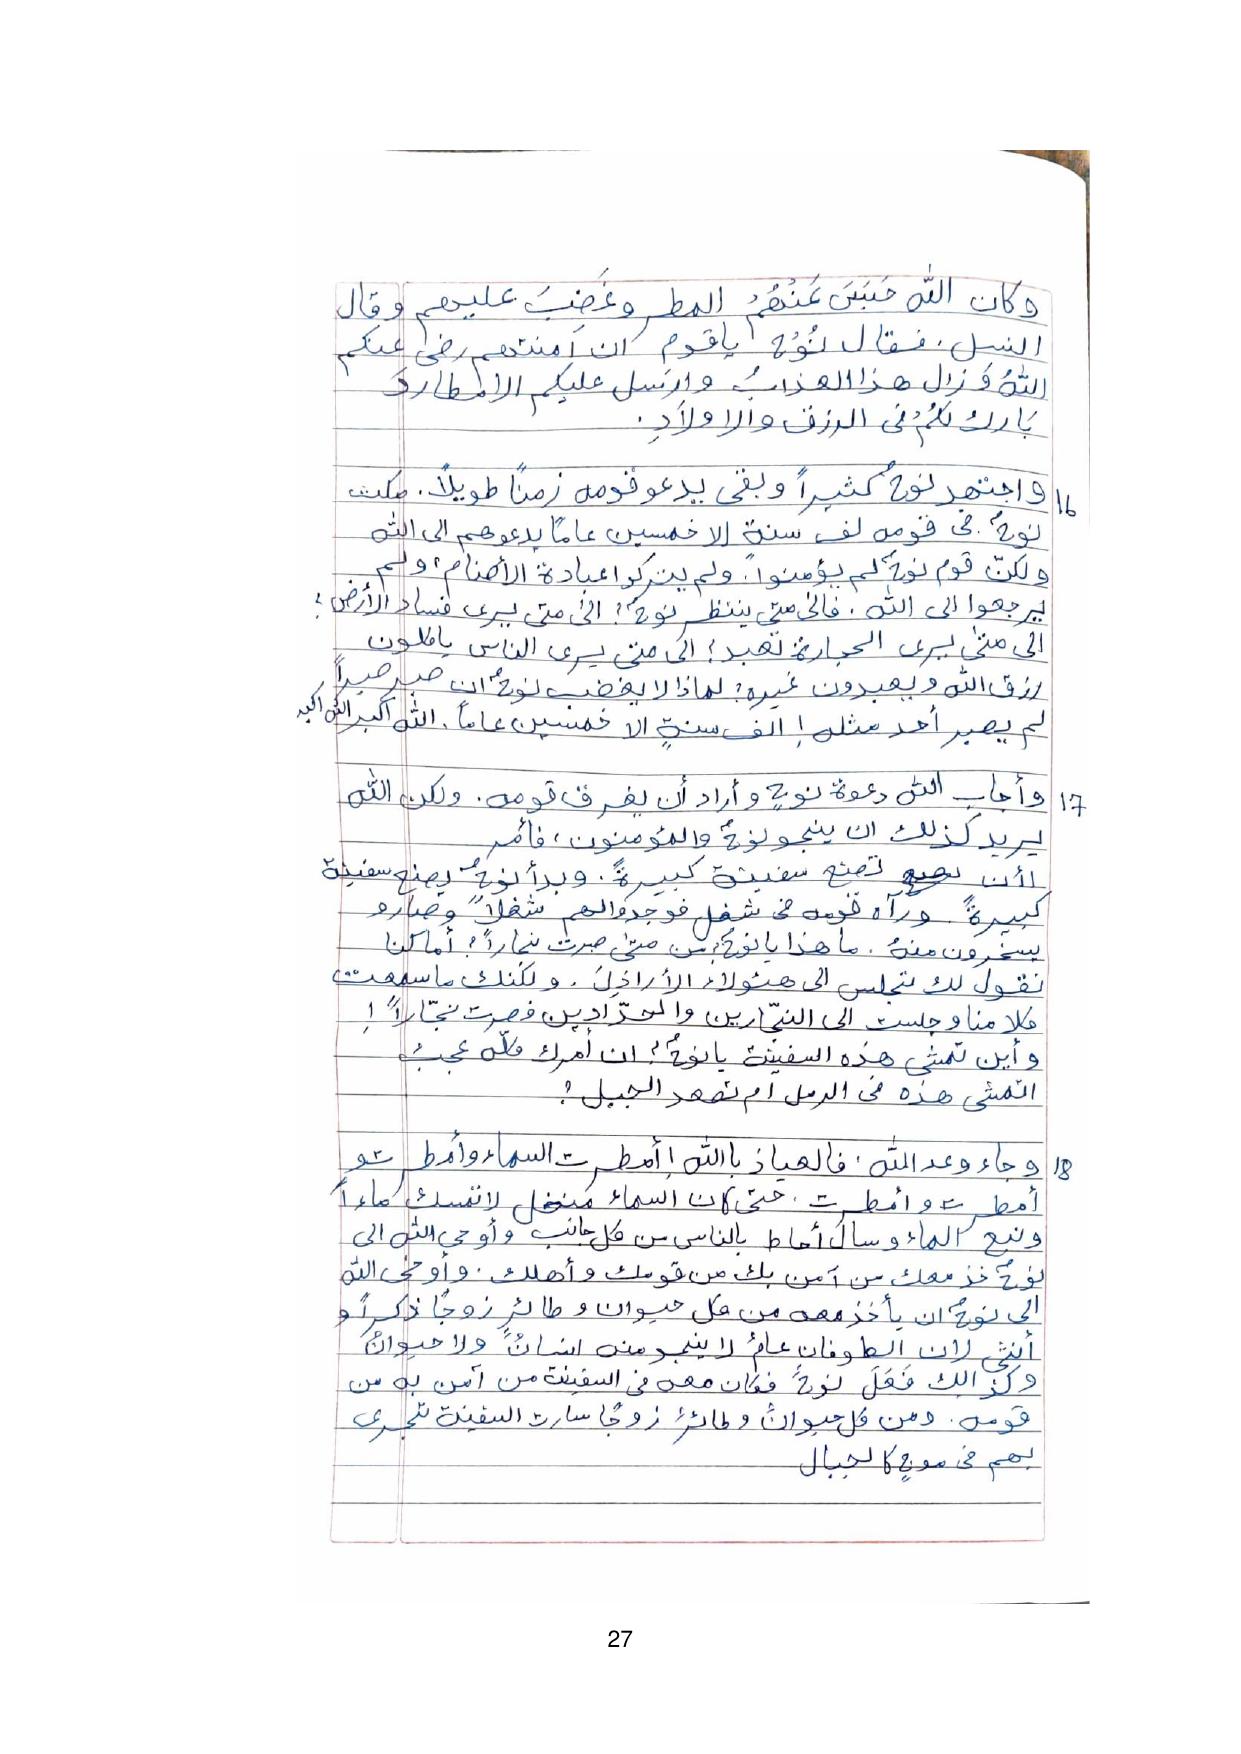 وكان الله حَبَسَ عَنْهُمُ المطر وغَضِبَ عليهم وقال
النسل، فقال نُوْحٌ ياقوم ان آمنتهم رضى عنكم
اللهُ وَزال هذا العذابُ وارسل عليكم الامطار وَ
بَارك لكُمْ فى الرزق والاولادِ.
16 واجتهد نوحٌ كثيراً وبقى يدعو قومه زمناً طويلاً. مكث
نوحٌ فى قومه لف سنة إلا خمسين عاماً يدعوهم الى الله
ولكنّ قوم نوحٌ لم يؤمنوا. ولم يتركوا عبادة الأصنام، ولم
يرجعوا الى الله. فالى متى ينتظر نوحٌ؟ الى متى يرى فساد الأرض؟
الى متى يرى الحجارة تعبد؟ الى متى يرى الناس ياكلون
رزق الله ويعبدون غيره؟ لماذا لا يغضب نوحٌ ان صبر صبراً
لم يصبر أحد مثله! الف سنةٍ الا خمسين عاماً. الله اكبر الله اكبر
17 وأجاب الله دعوة نوحٍ وأراد أن يغرق قومه. ولكن الله
يريد كذلك ان ينجو نوحٌ والمؤمنون، فأمر
لأن تصنع سفينة كبيرةً. وبدأ نوحٌ يصنع سفينة
كبيرةً ورآه قومه فى شغل فوجدوالهم شغلاً وصارو
يسخرون منهُ. ما هذا يا نوحُ، من متى صرت نجاراً؟ أماكنا
نقول لك تجلس الى هئولاء الأراذِلَ. ولكنك ما سمعت
كلامنا وجلست الى النجّارين والحدّادين فصرت نجّاراً!
وأين تمشى هذه السفينة يا نوحُ؟ ان أمرك كلّه عجبٌ
اتمشى هذه فى الرمل ام تصعد الجبل؟
18 وجاء وعد الله، فالعياذ باالله! أمطرت السماء وأمطرت و
أمطرت و امطرت. حتى كان السماء مُنخل لاتمسك ماءاً
ونبع الماء وسال أحاط بالناس من كل جانب وأوحى الله الى
نوحٌ خذ معك من آمن بك من قومك وأهلك. وأوحى الله
الى نوحٌ ان يأخذ معه من كل حيوان و طائرٍ زوجًا ذكراً و
أنثى لان الطوفان عامٌ لا ينجو منه انسانٌ ولا حيوانٌ
وكذالك فَعَلَ نوحٌ فكان معه فى السفينة من آمن به من
قومه. ومن كل حيوانٌ و طائرٌ زوجًا سارت السفينة تجرى
بهم فى موجٍ كالجبال
27